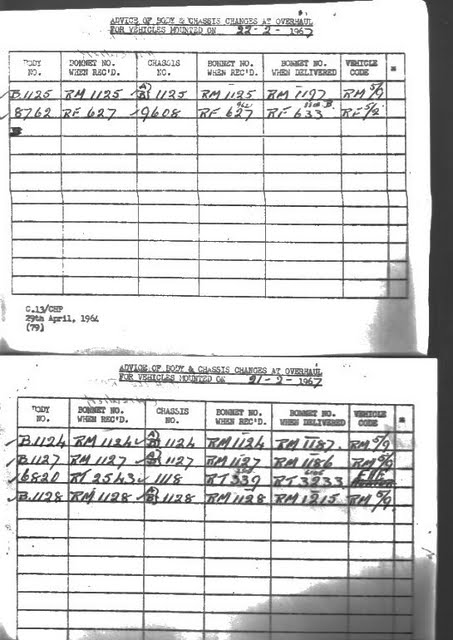 ADVICE OF BODY & CHASSIS CHANGES AT OVERHAUL
FOR VEHICLES MOUNTED ON 22-2-1967
BODY NO. BONNET NO. WHEN REC'D. CHASSIS NO. BONNET NO. WHEN REC'D. BONNET NO. WHEN DELIVERED VEHICLE CODE
B.1125 RM 1125 A) B) 1125 RM 1125 RM 1197 RM 5/9
8762 RF 627 9608 RF 627 RF 633 RF 5/2
G.13/CHP
29th April, 1964
(79)
ADVICE OF BODY & CHASSIS CHANGES AT OVERHAUL
FOR VEHICLES MOUNTED ON 21-2-1967
BODY NO. BONNET NO. WHEN REC'D. CHASSIS NO. BONNET NO. WHEN REC'D. BONNET NO. WHEN DELIVERED VEHICLE CODE
B.1124 RM 1124 A) B) 1124 RM 1124 RM 1187. RM 5/9
B.1127 RM 1127 A) 1127 RM 1127 RM 1186 RM 5/9
6820 RT 2543 1118 RT 339 RT 3233
B.1128 RM 1128 A) B) 1128 RM 1128 RM 1215 RM 5/9